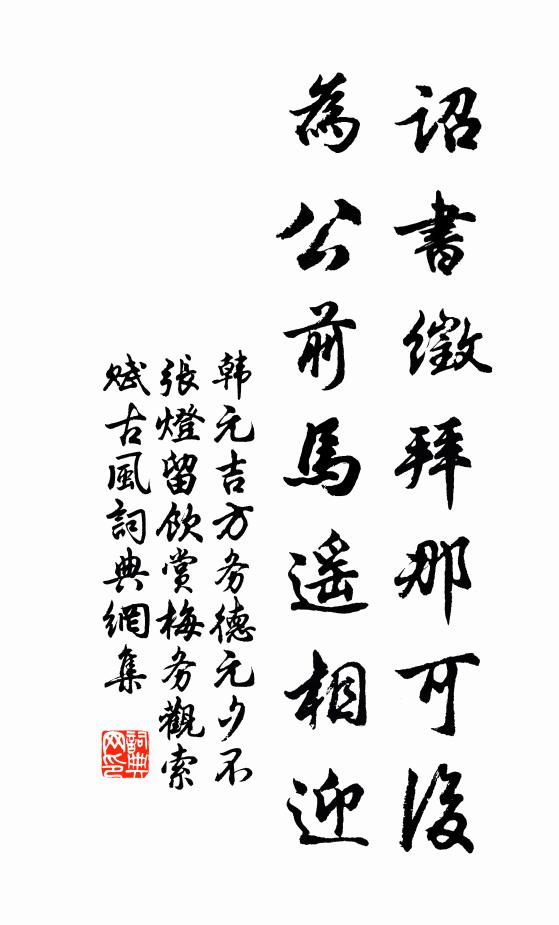 詔書徵拜那可後
為公前馬遥相迎
韩元吉方务德元夕不
張燈留飲赏梅务觀索
赋古風詞典網集
詞典网印